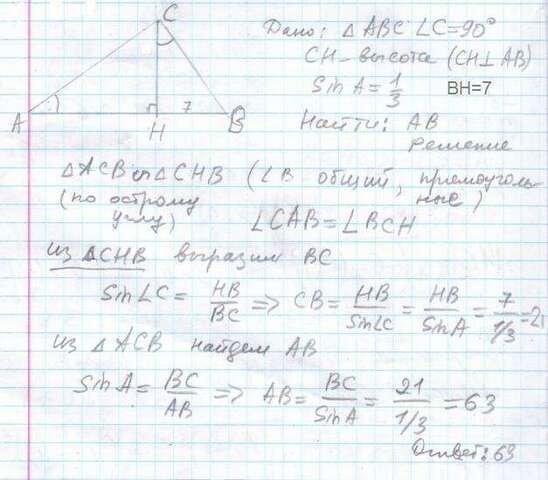 C
A H 7 B
Дано: △ABC ∠C=90°
CH – высота (CH⊥AB)
Sin A = 1/3 BH=7
Найти: AB
Решение
△ACB ∾ △CHB (∠B общий, прямоугольные)
(по острому углу)
∠CAB = ∠BCH
из △CHB выразим BC
Sin∠C = HB/BC => CB = HB/Sin∠C = HB/SinA = 7/1/3 = 21
из △ACB найдем AB
Sin A = BC/AB => AB = BC/SinA = 21/1/3 = 63
Ответ: 63